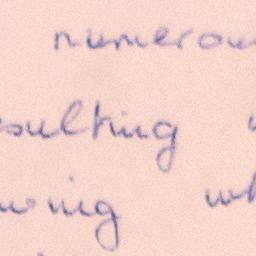 numerou
esulting
wing wh